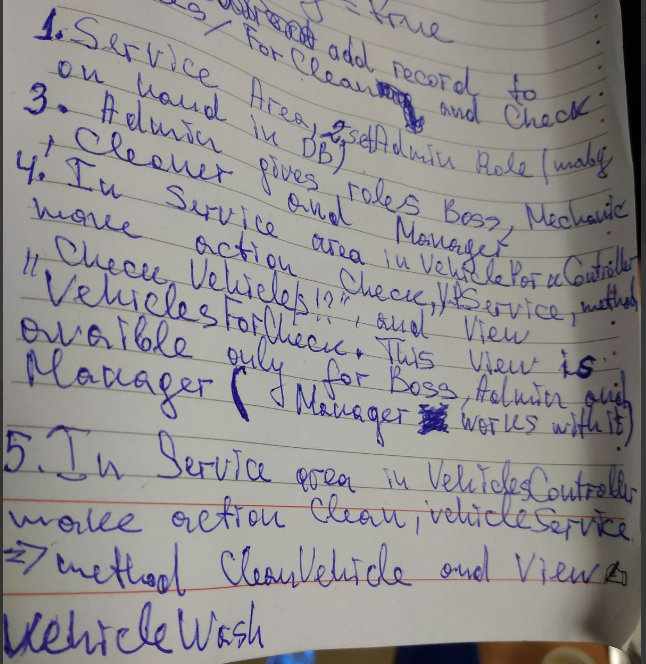 = true
add record to
/ ForClean and Check
1. Service Area, 2. setAdmin Role (maby
on hand in DB)
3. Admin gives roles Boss, Mechanic
, Cleaner and Manager
4. In Service area in Vehicle Controller
make action Check, Service, method
"Check Vehicles!?", and View
VehiclesForCheck. This View is
avaible only for Boss, Admin and
Manager ( Manager works with it)
5. In Service area in VehiclesController
make action Clean, vehicleService
=> method CleanVehicle and View
VehicleWash